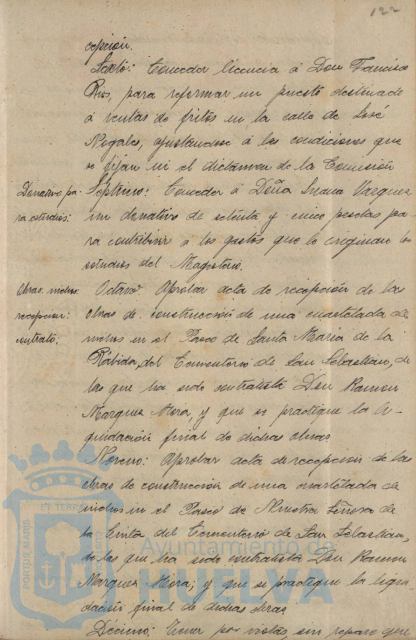 122
cepcion.
Sexto: Conceder licencia á Don Francisco
Rus, para reformar un puesto destinado
á ventas de fritos en la calle de José
Nogales, ajustandose á las condiciones que
se fijan en el dictamen de la Comisión
Donativo pa-
ra estudios:
Septimo: Conceder á Doña Juana Vazquez
un donativo de setenta y cinco pesetas pa-
ra contribuir á los gastos que le originan los
estudios del Magisterio.
Obras nichos
recepcion
contrato:
Octavo: Aprobar acta de recepción de las
obras de construcción de una cuartelada de
nichos en el Paseo de Santa Maria de la
Rábida, del Cementerio de San Sebastian, de
las que ha sido contratista Don Ramon
Marquez Mora, y que se practique la li-
quidación final de dichas obras
Noveno: Aprobar acta de recepcion de las
obras de construcción de una cuartelada de
nichos en el Paseo de Nuestra Señora de
la Cinta del Cementerio de San Sebastian,
de las que ha sido contratista Don Ramon
Marquez Mora; y que se practique la liqui-
dación final de dichas obras
Décimo: Tener por vistas sin reparo que
PORTUS MARIS
ET TERRAE
Ayuntamiento de
HUELVA